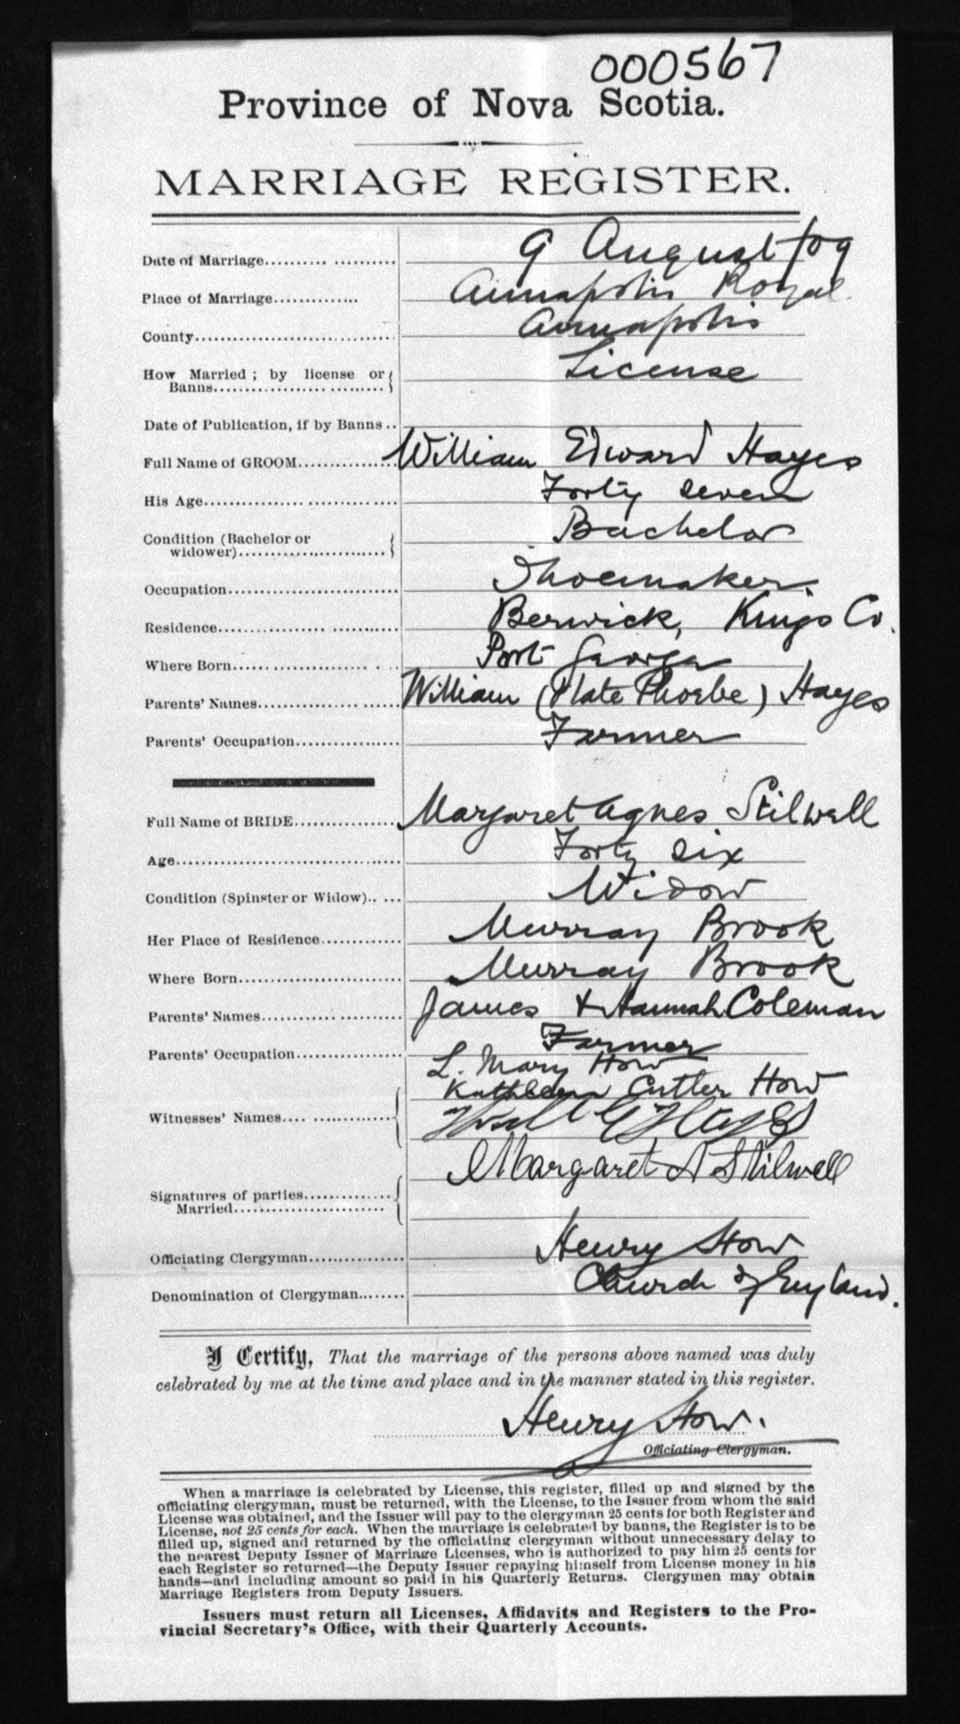 000567
Province of Nova Scotia.
MARRIAGE REGISTER.
Date of Marriage 9 August /09
Place of Marriage Annapolis Royal.
County Annapolis
How Married; by license or Banns License
Date of Publication, if by Banns
Full Name of GROOM William Edward Hayes
His Age Forty seven
Condition (Bachelor or widower) Bachelor
Occupation Shoemaker
Residence Berwick, Kings Co.
Where Born Port George
Parents' Names William ( Phoebe) Hayes
Parents' Occupation Farmer
Full Name of BRIDE Margaret Agnes Stilwell
Age Forty six
Condition (Spinster or Widow) Widow
Her Place of Residence Murray Brook
Where Born Murray Brook
Parents' Names James & Hannah Coleman
Parents' Occupation Farmer
L. Mary How
Witnesses' Names Kathleen Cutler How
Hayes
Signatures of parties Married Margaret A Stilwell
Officiating Clergyman Henry How
Denomination of Clergyman Church of England.
I Certify, That the marriage of the persons above named was duly
celebrated by me at the time and place and in the manner stated in this register.
Henry How.
Officiating Clergyman.
When a marriage is celebrated by License, this register, filled up and signed by the
officiating clergyman, must be returned, with the License, to the Issuer from whom the said
License was obtained, and the Issuer will pay to the clergyman 25 cents for both Register and
License, not 25 cents for each. When the marriage is celebrated by banns, the Register is to be
filled up, signed and returned by the officiating clergyman without unnecessary delay to
the nearest Deputy Issuer of Marriage Licenses, who is authorized to pay him 25 cents for
each Register so returned—the Deputy Issuer repaying himself from License money in his
hands—and including amount so paid in his Quarterly Returns. Clergymen may obtain
Marriage Registers from Deputy Issuers.
Issuers must return all Licenses, Affidavits and Registers to the Pro-
vincial Secretary's Office, with their Quarterly Accounts.